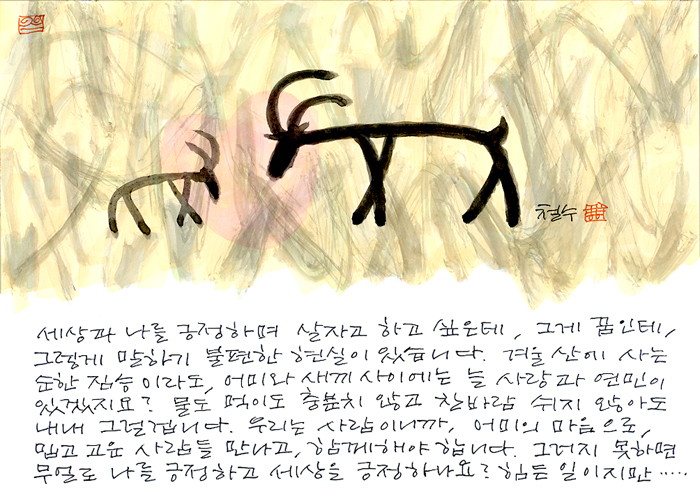 철수
세상과 나를 긍정하며 살자고 하고 싶은데, 그게 꿈인데,
그렇게 말하기 불편한 현실이 있습니다. 겨울 산에 사는
순한 짐승이라도, 어미와 새끼 사이에는 늘 사랑과 연민이
있겠지요? 물도 먹이도 충분치 않고 찬바람 쉬지 않아도
내내 그럴겁니다. 우리는 사람이니까, 어미의 마음으로,
밉고 고운 사람들 만나고, 함께해야 합니다. 그러지 못하면
무얼로 나를 긍정하고 세상을 긍정하나요? 힘든 일이지만·····